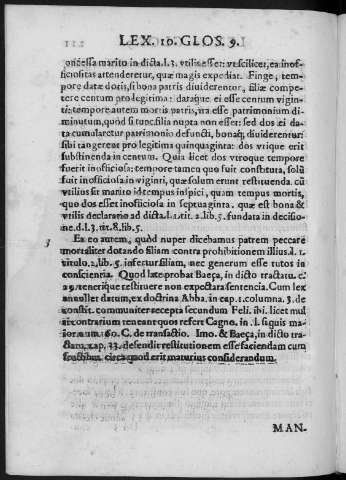 LEX. 10. GLOS. 9.
oncessa marito in dicta.l.3. vtilis esset: vt scilicet, ea inof-
ficiositas attenderetur, quæ magis expediat. Finge, tem-
pore datæ doris, si bona patris diuiderentur, filiæ compe-
tere centum pro legitima: daraque ei esse centum vigin-
ti: tempore autem mortis patris, ita esse patrimonium di-
minutum, quòd si tunc filia nupta non esset: sed dos ei da-
ta cumularetur patrimonio defuncti, bonaq; diuiderentur:
sibi tangeret pro legitima quinquaginta: dos vtique erit
substinenda in centum. Quia licet dos vtroque tempore
fuerit inofficiosa: tempore tamen quo fuit constituta, solũ
fuit inofficiosa in viginti, quæ solum erunt restituenda. cũ
vtilius sit marito id tempus inspici, quam tempus mortis,
quo dos esset inofficiosa in septuaginta. quæ est bona &
vtilis declaratio ad dicta.l.1.tit.2.lib.5. fundata in decisio-
ne.d.l.3.tit.8.lib.5.
3 Ex eo autem, quòd nuper dicebamus patrem peccare
mortaliter dotando filiam contra prohibitionem illius.l.1.
titulo.2.lib.5. infertur filiam, nec generum esse tutos in
conscientia. Quod late probat Baeça, in dicto tractatu.
tenerique restituere non expectata sentencia. Cum lex
annullet datum, ex doctrina Abba. in cap.1. columna.3. de
constit. communiter recepta secundum Feli. ibi. licet mul
ti contrarium teneant quos refert Cagno. in.l. si quis ma-
ior. C. de transactio. Imo. & Baeça, in dicto tra-
ctatu, cap.33. defendit restitutionem esse faciendam cum
fructibus. circa quod erit maturius considerandum.
MAN-